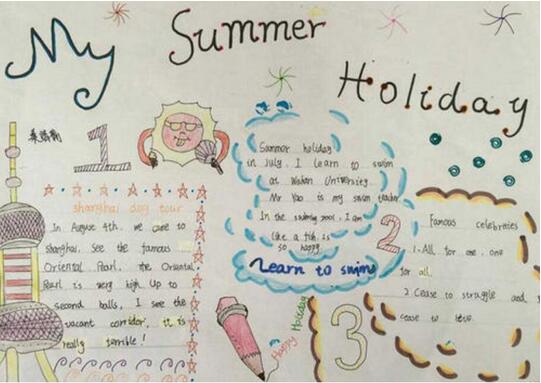 My Summer Holiday
1
shanghai day tour
In August 4th, we came to
Shanghai. See the famous
Oriental Pearl. the Oriental
Pearl is very high. Up to
second balls, I see the
vacant corridor, it is
really terrible!
Summer holiday
in July. I learn to swim
at Wuhan University.
Mr Yao is my swim teacher.
In the swimming pool, I am
like a fish. is
so happy.
Learn to swim
2
Famous celebrities
1. All for one, one
for all.
2. Cease to struggle and
cease to live.
3
Happy Holiday